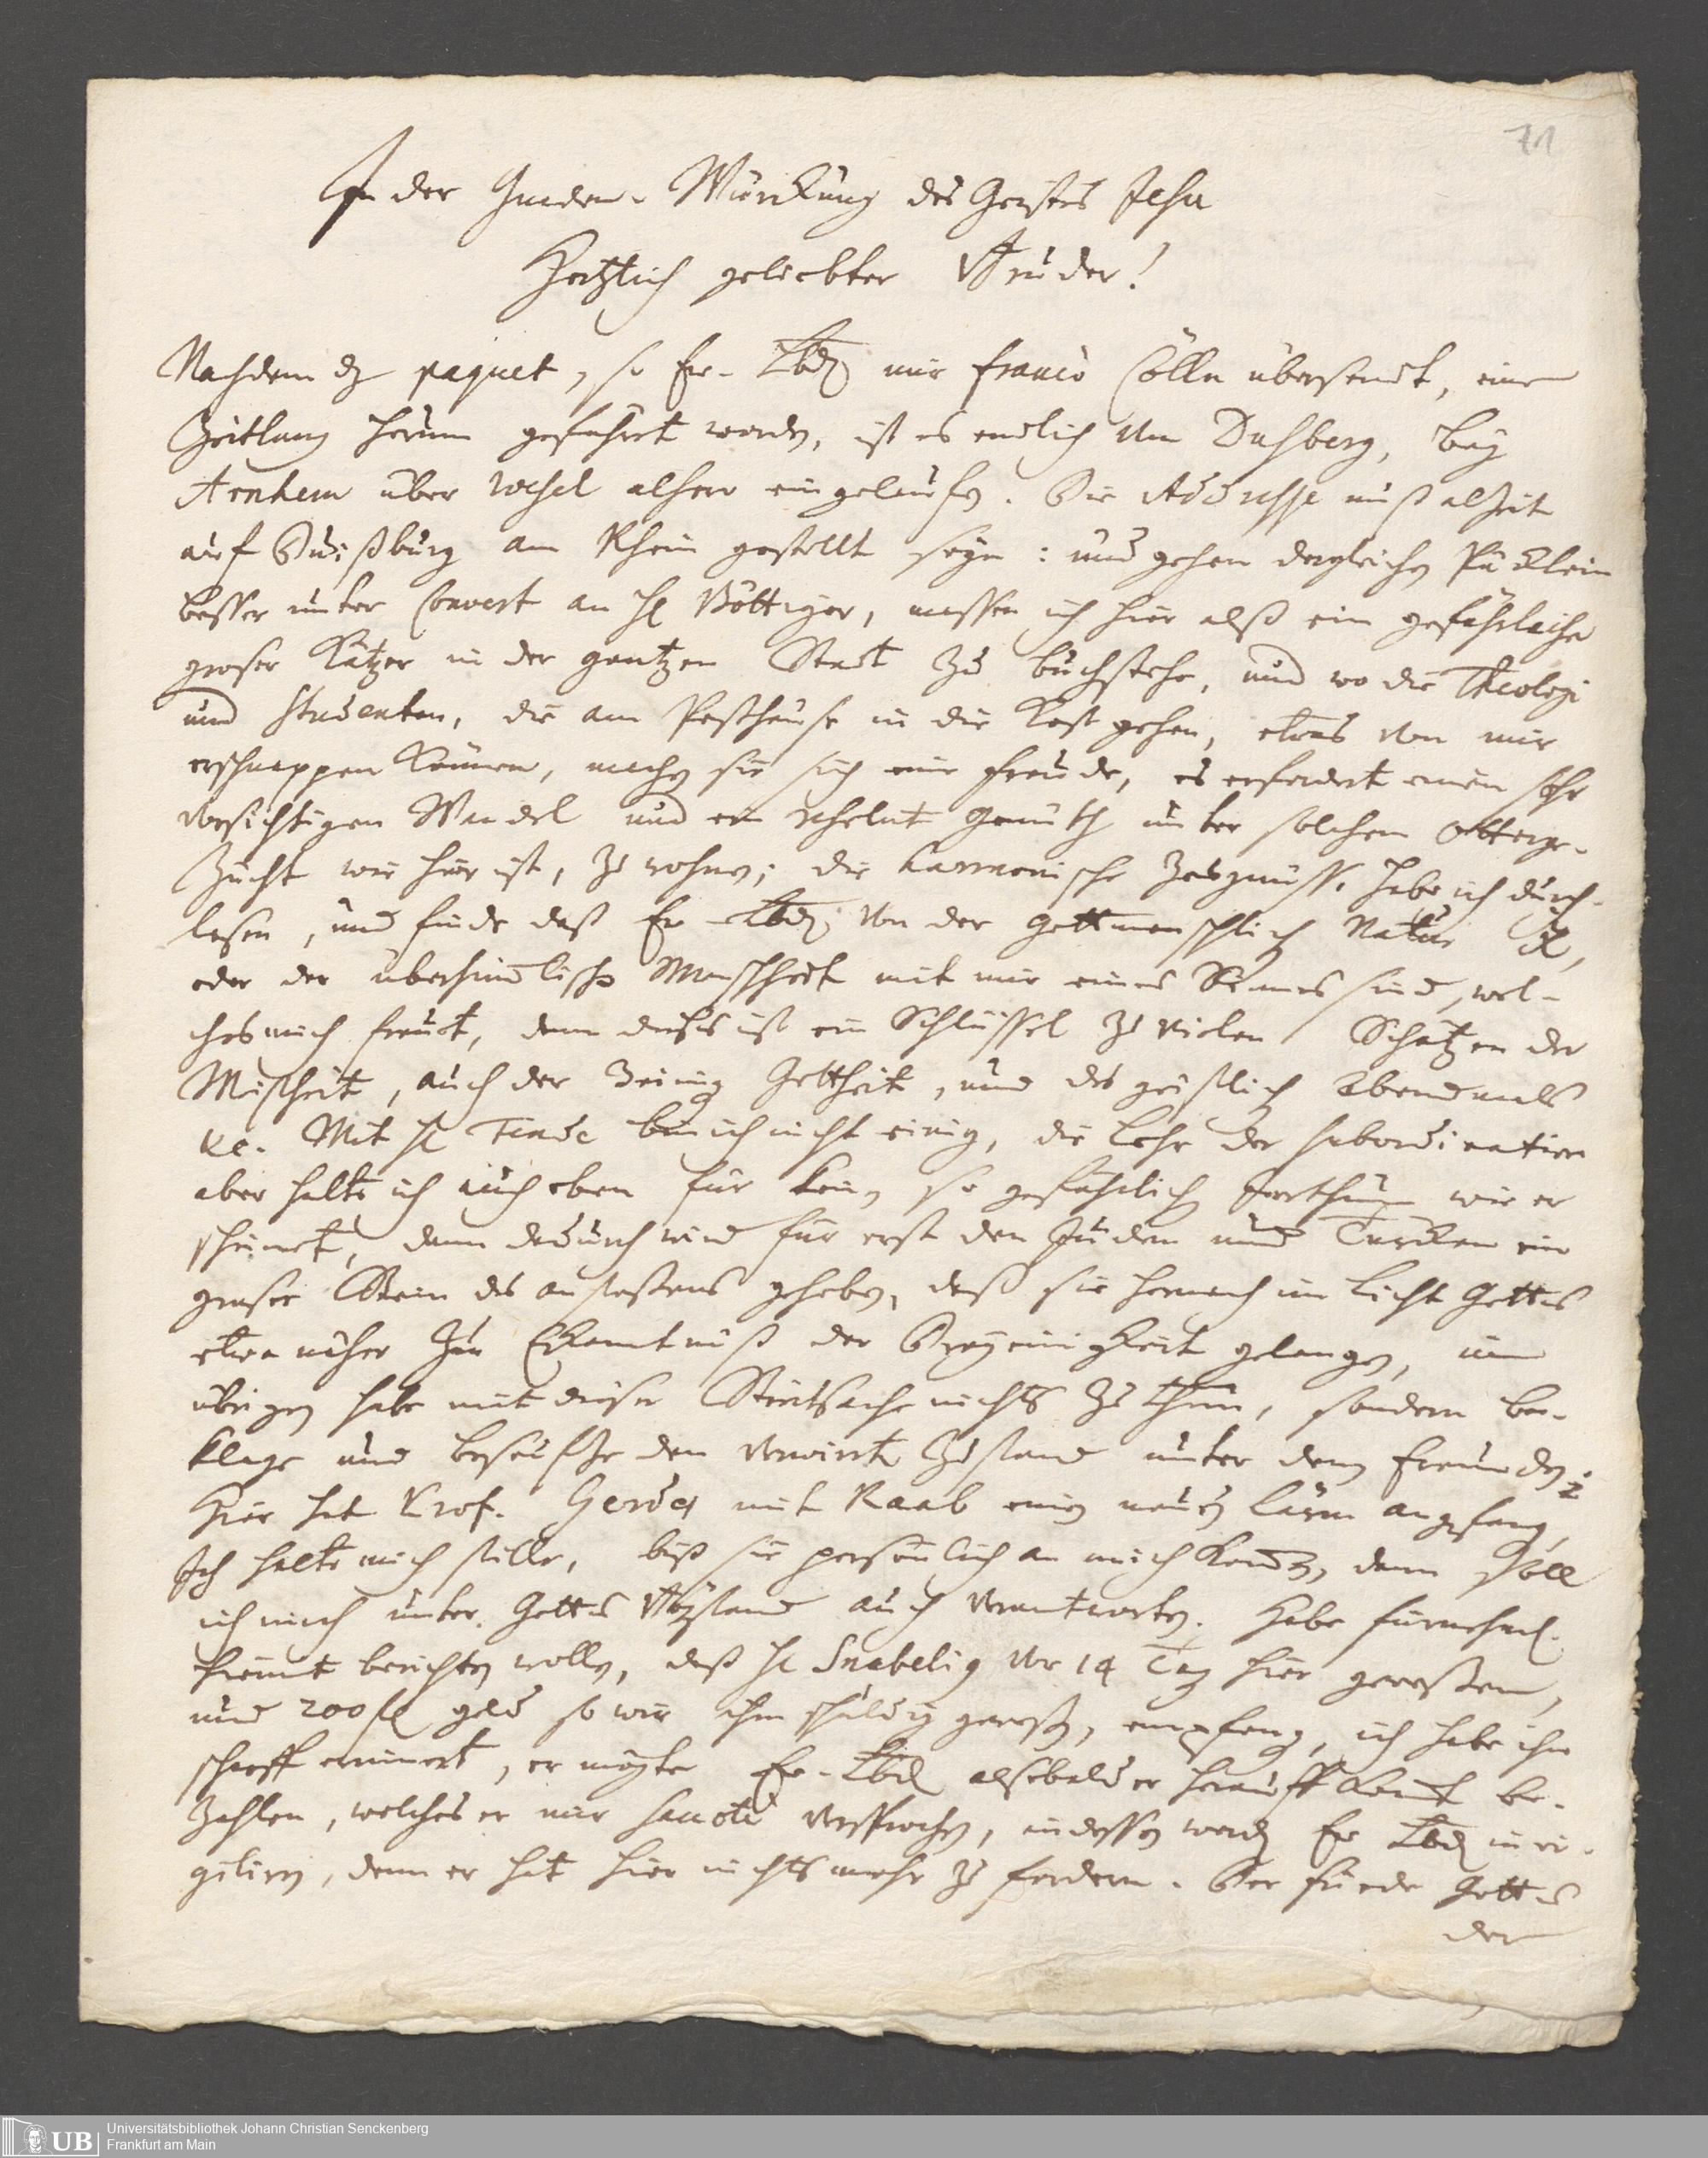 71
In der Gnaden-Würckung des Geistes Jesu
Hertzlich geliebter Bruder!
Nachdem dz paquet, so Ew. Lbd. mir franco Cölln übersandt, eine
Zeitlang herum geführt worden, ist es endlich von Dusberg, bey
Arnhem über Wesel alhier eingelauffen. Die Addresse muß alzeit
auf Duißburg am Rhein gestellt seyn: und gehen dergleichen Päcklein
besser unter Couvert an H. Böttiger, massen ich hier alß ein gefährlicher
groser Kätzer in der gantzen Stadt zu buch stehe, und wo die Theologi
und Studenten, die am Posthause in die Kost gehen, etwas von mir
erschnappen können, machen sie sich eine freude, es erfordert einen sehr
vorsichtigen Wandel und ein resolut Gemüth unter solchem Otterge-
zücht wie hier ist, zu wohnen; die Zeugnüsse habe ich durch-
lesen, und finde daß Ew. Lbd. von der Gottmenschlichen Natur
oder der überhimlischen Menschheit mit mir eines Sinnes sind, wel-
ches mich freuet, denn dieses ist ein Schlüssel zu vielen Schätzen der
Weißheit, auch der 3einigen Gottheit, und des geistlichen Abendmals
&c. Mit H. bin ich nicht einig, die Lehr der subordination
aber halte ich auch eben für kein so gefährlichen Irrthum wie er
scheinet, denn dadurch wird für erst den Juden und Turcken ein
groser Stein des anstossens gehoben, daß sie hernach im Licht Gottes
etwa näher zur Erkentniß der Dreyeinigkeit gelangen, im
übrigen habe mit dieser Streitsache nichts zu thun, sondern be-
klage und beseuftze den verwirrten Zustand unter denen freunden
Hier hat Prof. Gerdes mit Raab einen neuen Lärm angefangen,
Ich halte mich stille, biß sie persönlich an mich kommen, denn soll
ich mich unter Gottes Beystand auch verantworten. Habe fürnehml.
hiemit berichten wollen, daß H. Snabelig vor 14 Tag hier gewesen,
und 200 fl geld so wir ihm schuldig gewesen, empfangen, ich habe ihn
scharff erinnert, er mögte Ew. Lbd. alsobald er herauff kommt be-
zahlen, welches er mir sancte versprochen, indessen werden Ew. Lbd. invi-
giliren, denn er hat hier nichts mehr zu fordern. Der friede Gottes
der
Universitätsbibliothek Johann Christian Senckenberg
Frankfurt am Main
UB